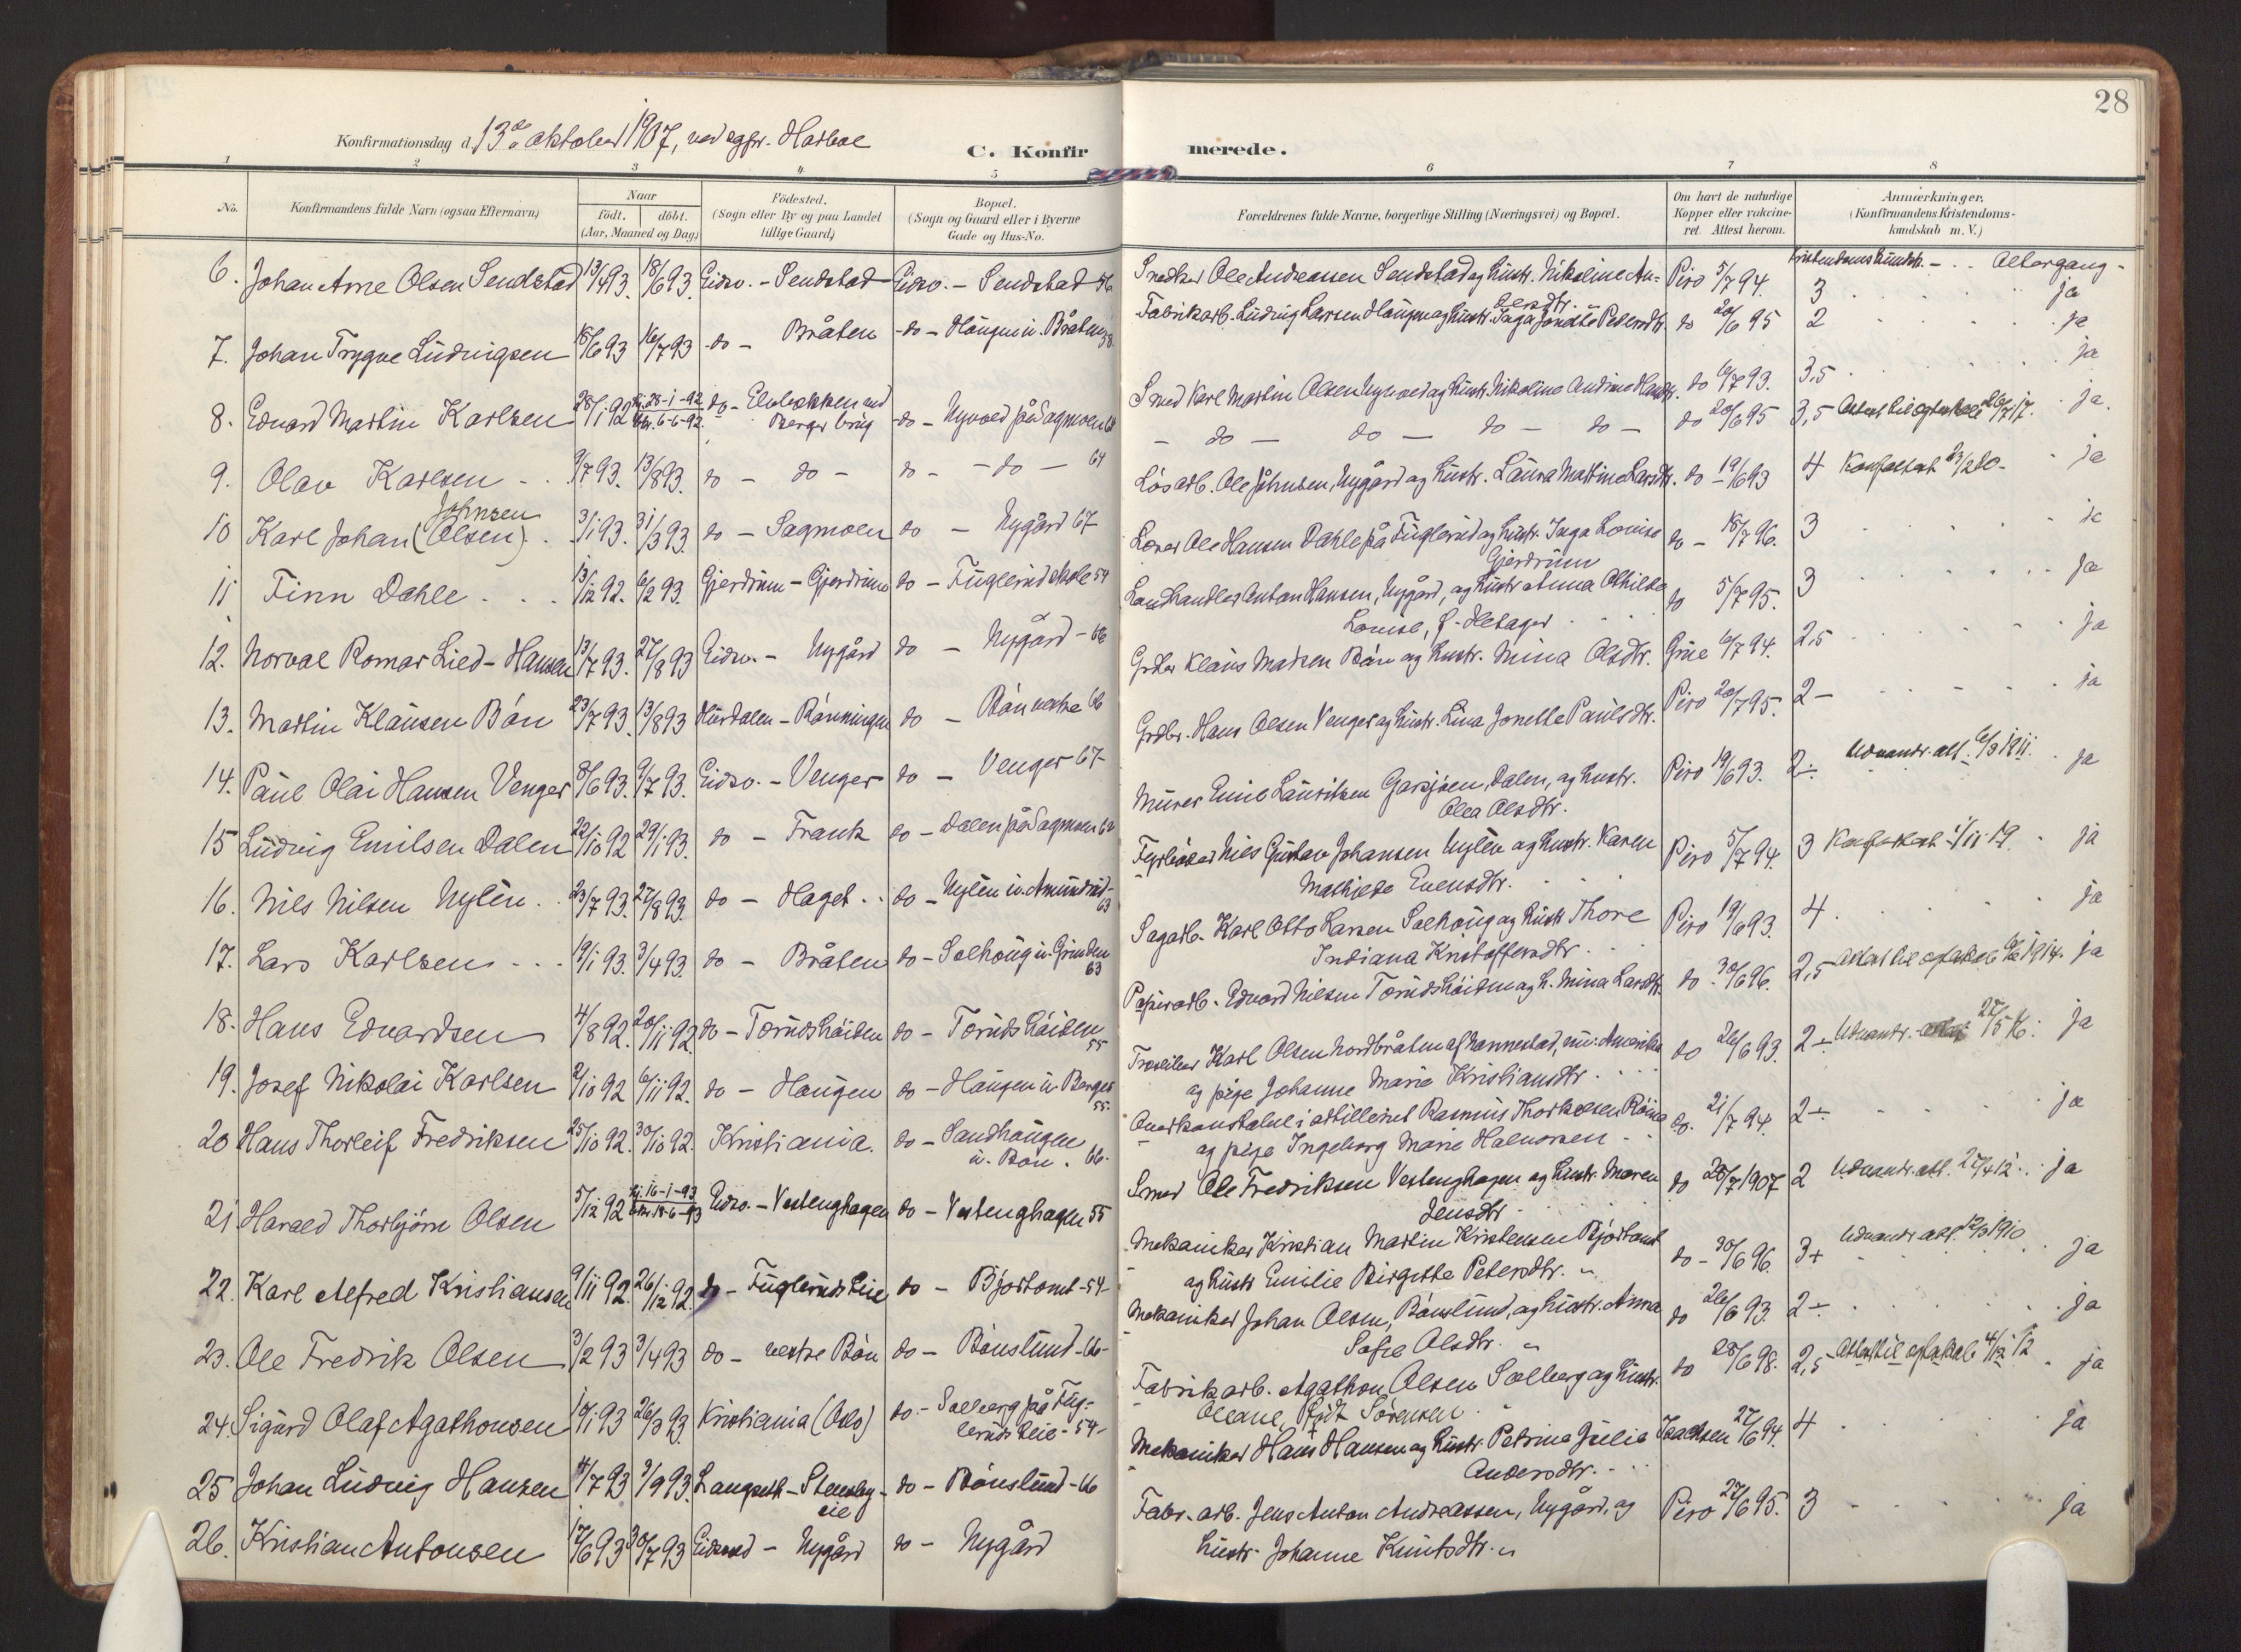 28
Konfirmationsdag d. 13de oktober 1907, ved sgpr. Harboe
C. Konfirmerede.
1 2 3 4 5 6 7 8
No.
Konfirmandens fulde Navn (ogsaa Efternavn)
Naar
födt. döbt.
(Aar, Maaned og Dag)
Födested.
(Sogn eller By og paa Landet
tillige Gaard)
Bopæl.
(Sogn og Gaard eller i Byerne
Gade og Hus-No.
Forældrenes fulde Navne, borgerlige Stilling (Næringsvei) og Bopæl.
Om havt de naturlige
Kopper eller vakcine-
ret. Attest herom.
Anmærkninger.
(Konfirmandens Kristendoms-
kundskab m. V.)
Kristendomskundsk. - Altergang -
6. Johan Arne Olsen Sendstad 13/4 93. 18/6 93. Eidsv. - Sendstad Eidsv. - Sendstad 56 Snedker Ole Andreassen Sendstad og hustr. Nikoline An-
dersdtr. Piro 5/7 94. 3 ja
7. Johan Trygve Ludvigsen 18/6 93 16/7 93 do - Bråten do - Haugen u. Bråten 58 Fabrikarb. Ludvig Larsen Haugen og hustr. Inga Jonette Pedersdtr. do 20/6 95 2 ja
8. Edvard Martin Karlsen 28/1 92 hj. 28-1-92 do - Elvebakken ved
Berger brug do - Nyvold på Sagmoen Smed Karl Martin Olsen Nyvold og hustr. Nikoline Andine Hansdtr. do 6/7 93. 3,5 ja
9. Olav Karlsen 9/7 93. 13/8 93. do - do - do - do - 64 - do - do - do - do - do 20/6 95 3,5 ja.
10 Karl Johan (Olsen) Johnsen 3/1 93. 31/3 93. do - Sagmoen do - Nygård 67 Løsarb. Ole Johnsen, Nygård og hustr. Laura Martine Larsdtr. do 19/6 93 4 ja
11 Finn Dahle 13/12 92. 6/2 93. Gjerdrum - Gjerdrum do - Fuglerud skole 54 Lærer Ole Hansen Dahle på Fuglerud og hustr. Inga Louise
Gjerdrum do - 18/7 96. 3 ja
12. Norval Romar Lied-Hansen 13/7 93. 27/8 93 Eidsv. - Nygård do - Nygård - 66 Landhandler Anton Hansen, Nygård, og hustr. Anna Othilde
Louise, f. Hetager do 5/7 95. 3 ja
13. Martin Klausen Bøn 23/7 93. 13/8 93 Hurdalen - Rønningen do - Bøn vestre 66 Grdbr. Klaus Madsen Bøn og hustr. Mina Olsdtr. Grüe 6/7 94. 2,5 ja
14. Paul Olai Hansen Venger 8/6 93. 9/7 93. Eidsv. - Venger do - Venger 67 Grdbr. Hans Olsen Venger og hustr. Lina Jonette Paulsdtr. Piro 20/7 95. 2 - ja
15 Ludvig Emilsen Dalen 22/10 92 29/1 93. do - Frank do - Dalen på Sagmoen Murer Emil Lauritsen Garsjøen, Dalen, og hustr.
Olea Olsdtr. Piro 19/6 93. 2 ÷ Udvandr. att. ja
16. Nils Nilsen Nylén 23/7 93. 27/8 93. do - Haget do - Nylén u. Amundrud
63 Fyrbøter Nils Gustav Johansen Nylén og hustr. Karen
Mathilde Evensdtr. Piro 5/7 94. 3 ja
17. Lars Karlsen 19/1 93. 3/4 93. do - Bråten do - Solhaug u. Grinden
63 Sagarb. Karl Otto Larsen Solhaug og hustr. Thore
Indiana Kristoffersdtr. Piro 19/6 93. 4 ja
18. Hans Edvardsen 4/8 92. 20/11 92. do - Torudshøiden do - Torudshøiden
55 Papirarb. Edvard Nilsen Torudshøiden og h. Mina Larsdtr. do 30/6 96. 2,5 1914. ja
19. Josef Nikolai Karlsen 2/10 92 6/11 92. do - Haugen do - Haugen u. Berger
55. Træsliber Karl Olsen Nordbråten af Nannestad, nu i Amerika
og pige Johanne Marie Kristiansdtr. do 26/6 93. 2 ÷ Udvandr. 27/5 16. ja
20 Hans Thorleif Fredriksen 25/10 92. 30/10 92. Kristiania. do - Sandhaugen
u. Bøn. 66. Overkonstabel i artilleriet Rasmus Thorkelsen
og pige Ingeborg Marie Halvorsen do. 21/7 94. 2 ÷ ja
21 Harald Thorbjørn Olsen 5/12 92 hj. 16-1-93 Eidsv. - Vestenghagen do - Vestenghagen 55 Smed Ole Fredriksen Vestenghagen og hustr. Maren
Jensdtr. do 20/7 1907 2 Udvandr. att. 27/4 12. ja
22. Karl Alfred Kristiansen 9/11 92. 26/12 92. do - Fugleruds eie do - Bjørtomt - 54 - Mekaniker Kristian Martin Kristensen Bjørtomt
og hustr. Emilie Birgitte Petersdtr. do - 30/6 96. 3 + Udvandr. att. 1910 ja
23. Ole Fredrik Olsen 3/2 93 3/4 93 do - vestre Bøn do - Bønslund - 66 - Mekaniker Johan Olsen, Bønslund, og hustr. Anna
Sofie Olsdtr. do 26/6 93. 2 ÷ ja
24. Sigurd Olaf Agathonsen 26/3 93. Kristiania (Oslo) do. - Solberg på Fug-
leruds eie - 54 - Fabrikarb. Agathon Olsen Solberg og hustr.
Oleane, født Sørensen do 28/6 98. 2,5 4/12 12 ja
25 Johan Ludvig Hansen 4/7 93 3/9 93. Langseth - Stensby-
eie do - Bønslund - 66 Mekaniker Hans Hansen og hustr. Petrine Julie
Andersdtr. Isachsen 27/6 94. 4 ja
26. Kristian Antonsen 17/6 93 30/7 93 Eidsvold - Nygård do - Nygård Fabr. arb. Jens Anton Andreassen, Nygård, og
hustr. Johanne Knutsdtr. Piro 27/6 95. 3 ja